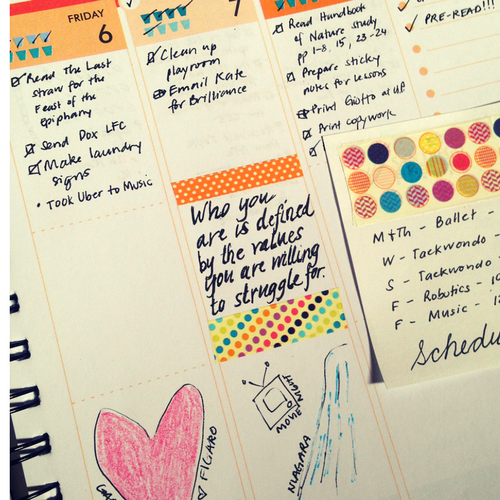 FRIDAY
6
Read The Last
straw for the
Feast of the
Epiphany
Send Dox LFC
Make laundry
signs
• Took Uber to Music
FIGARO
7
Clean up
playroom
Email Kate
for Brilliance
Who you
are is defined
by the values
you are willing
to struggle for.
MOVIE NIGHT
NIAGARA
Read Handbook
of Nature study
pp 1-8, 15, 23-24
Prepare sticky
notes for lessons
Print Giotto at UP
Print copywork
PRE-READ!!!
M+Th - Ballet -
W - Taekwondo -
S - Taekwondo -
F - Robotics - 10
F - Music - 1
Schedu